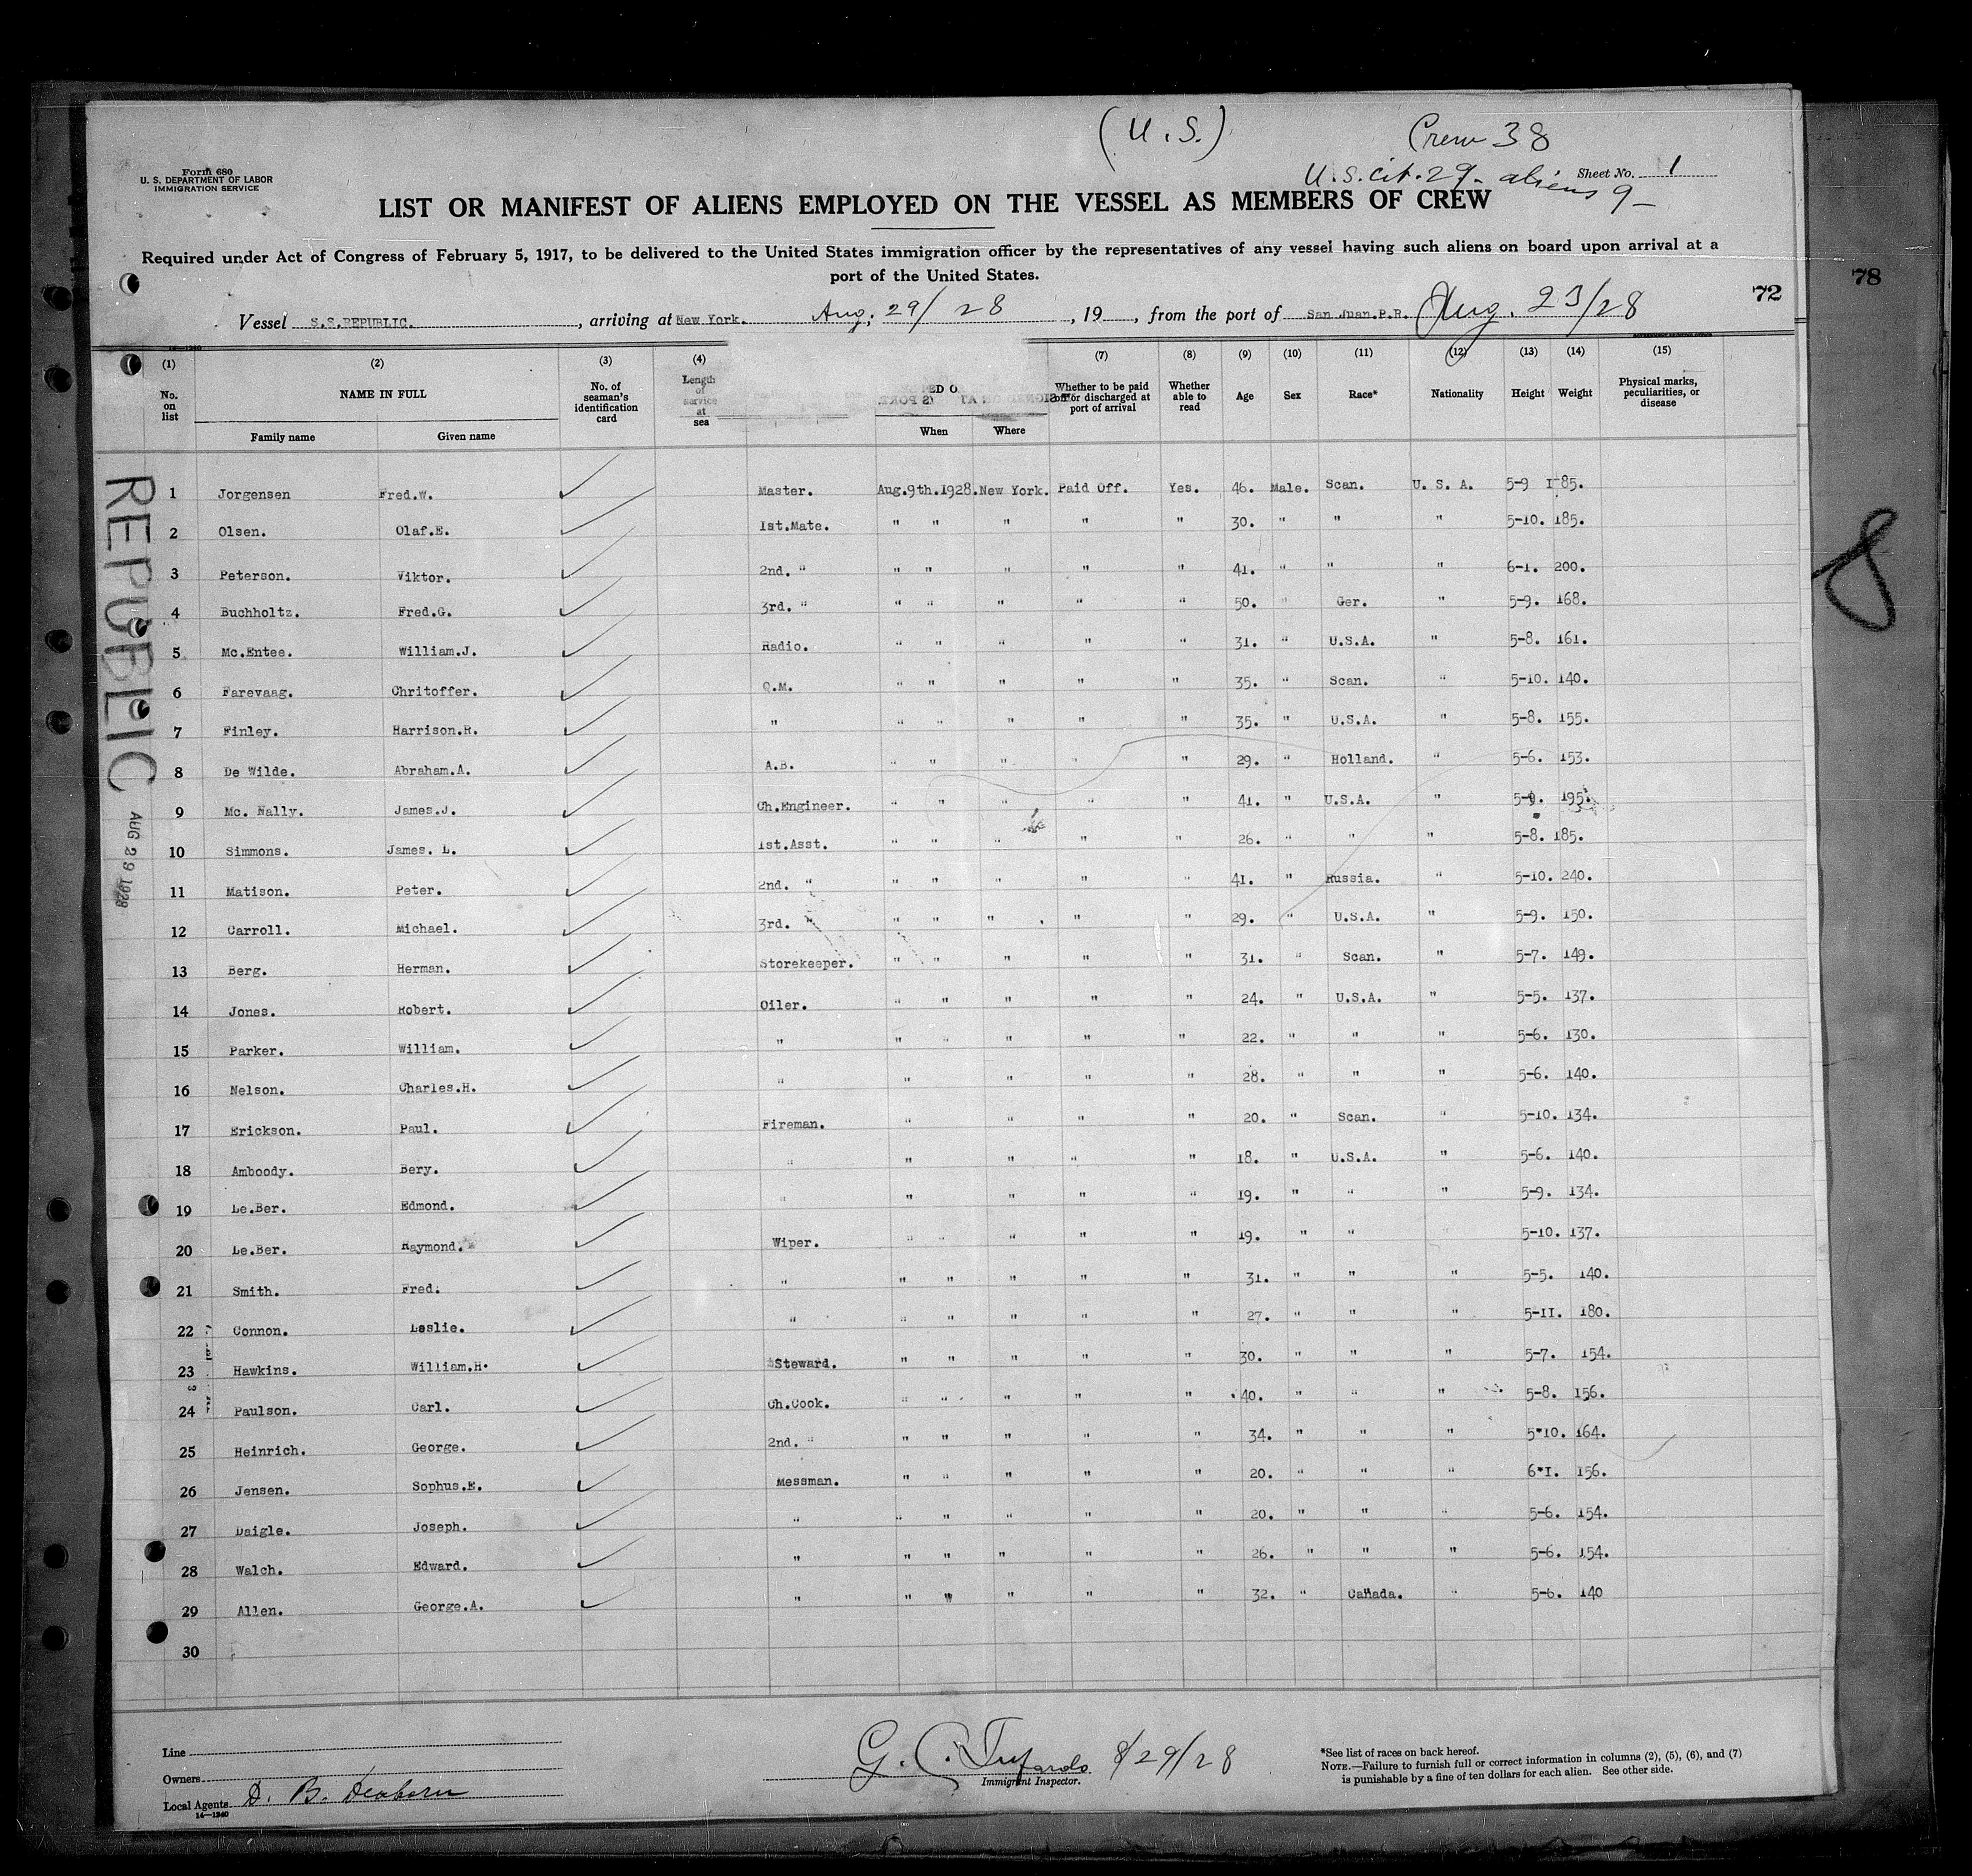 (U.S.)
Crew 38
U.S. cit. 29 - aliens 9 -
Form 680
U. S. DEPARTMENT OF LABOR
IMMIGRATION SERVICE
Sheet No. 1
LIST OR MANIFEST OF ALIENS EMPLOYED ON THE VESSEL AS MEMBERS OF CREW
Required under Act of Congress of February 5, 1917, to be delivered to the United States immigration officer by the representatives of any vessel having such aliens on board upon arrival at a
port of the United States.
72
78
Vessel S.S.REPUBLIC. , arriving at New York. Aug. 29/28 , 19 , from the port of San Juan.P.R. Aug. 23/28
(1) (2) (3) (4) (7) (8) (9) (10) (11) (12) (13) (14) (15)
No. on list
NAME IN FULL
Family name Given name
No. of seaman's identification card
Length of service at sea
When Where
Whether to be paid off or discharged at port of arrival
Whether able to read
Age Sex Race* Nationality Height Weight
Physical marks, peculiarities, or disease
REPUBLIC
AUG 29 1928
8
1 Jorgensen Fred.W. Master. Aug.9th.1928. New York. Paid Off. Yes. 46. Male. Scan. U. S. A. 5-9 185.
2 Olsen. Olaf.E. 1st.Mate. " " " " " 30. " " " 5-10. 185.
3 Peterson. Viktor. 2nd. " " " " " " 41. " " " 6-1. 200.
4 Buchholtz. Fred.G. 3rd. " " " " " " 50. " Ger. " 5-9. 168.
5 Mc.Entee. William.J. Radio. " " " " " 31. " U.S.A. " 5-8. 161.
6 Farevaag. Chritoffer. Q.M. " " " " " 35. " Scan. " 5-10. 140.
7 Finley. Harrison.R. " " " " " " 35. " U.S.A. " 5-8. 155.
8 De Wilde. Abraham.A. A.B. " " " " " 29. " Holland. " 5-6. 153.
9 Mc. Nally. James.J. Ch.Engineer. " " " " " 41. " U.S.A. " 5-9. 195.
10 Simmons. James. L. 1st.Asst. " " " " " 26. " " " 5-8. 185.
11 Matison. Peter. 2nd. " " " " " " 41. " Russia. " 5-10. 240.
12 Carroll. Michael. 3rd. " " " " " " 29. " U.S.A. " 5-9. 150.
13 Berg. Herman. Storekeeper. " " " " " 31. " Scan. " 5-7. 149.
14 Jones. Robert. Oiler. " " " " " 24. " U.S.A. " 5-5. 137.
15 Parker. William. " " " " " " 22. " " " 5-6. 130.
16 Nelson. Charles.H. " " " " " 28. " " " 5-6. 140.
17 Erickson. Paul. Fireman. " " " " 20. " Scan. " 5-10. 134.
18 Amboody. Bery. " " " " " 18. " U.S.A. " 5-6. 140.
19 Le.Ber. Edmond. " " " " " 19. " " " 5-9. 134.
20 Le.Ber. Raymond. Wiper. " " " " " 19. " " 5-10. 137.
21 Smith. Fred. " " " " " " 31. " " " 5-5. 140.
22 Connon. Leslie. " " " " " " 27. " " " 5-11. 180.
23 Hawkins. William.H. Steward. " " " " " 30. " " " 5-7. 154.
24 Paulson. Carl. Ch.Cook. " " " " " 40. " " " 5-8. 156.
25 Heinrich. George. 2nd. " " " " " " 34. " " " 5"10. 164.
26 Jensen. Sophus.E. Messman. " " " " " 20. " " " 6"1. 156.
27 Daigle. Joseph. " " " " " " 20. " " " 5-6. 154.
28 Walch. Edward. " " " " " " 26. " " " 5-6. 154.
29 Allen. George.A. " " " " " " 32. " Canada. " 5-6. 140
30
Line
Owners
Local Agents D. B. Deaborn
14—1240
8/29/28
Immigrant Inspector.
*See list of races on back hereof.
NOTE.—Failure to furnish full or correct information in columns (2), (5), (6), and (7)
is punishable by a fine of ten dollars for each alien. See other side.